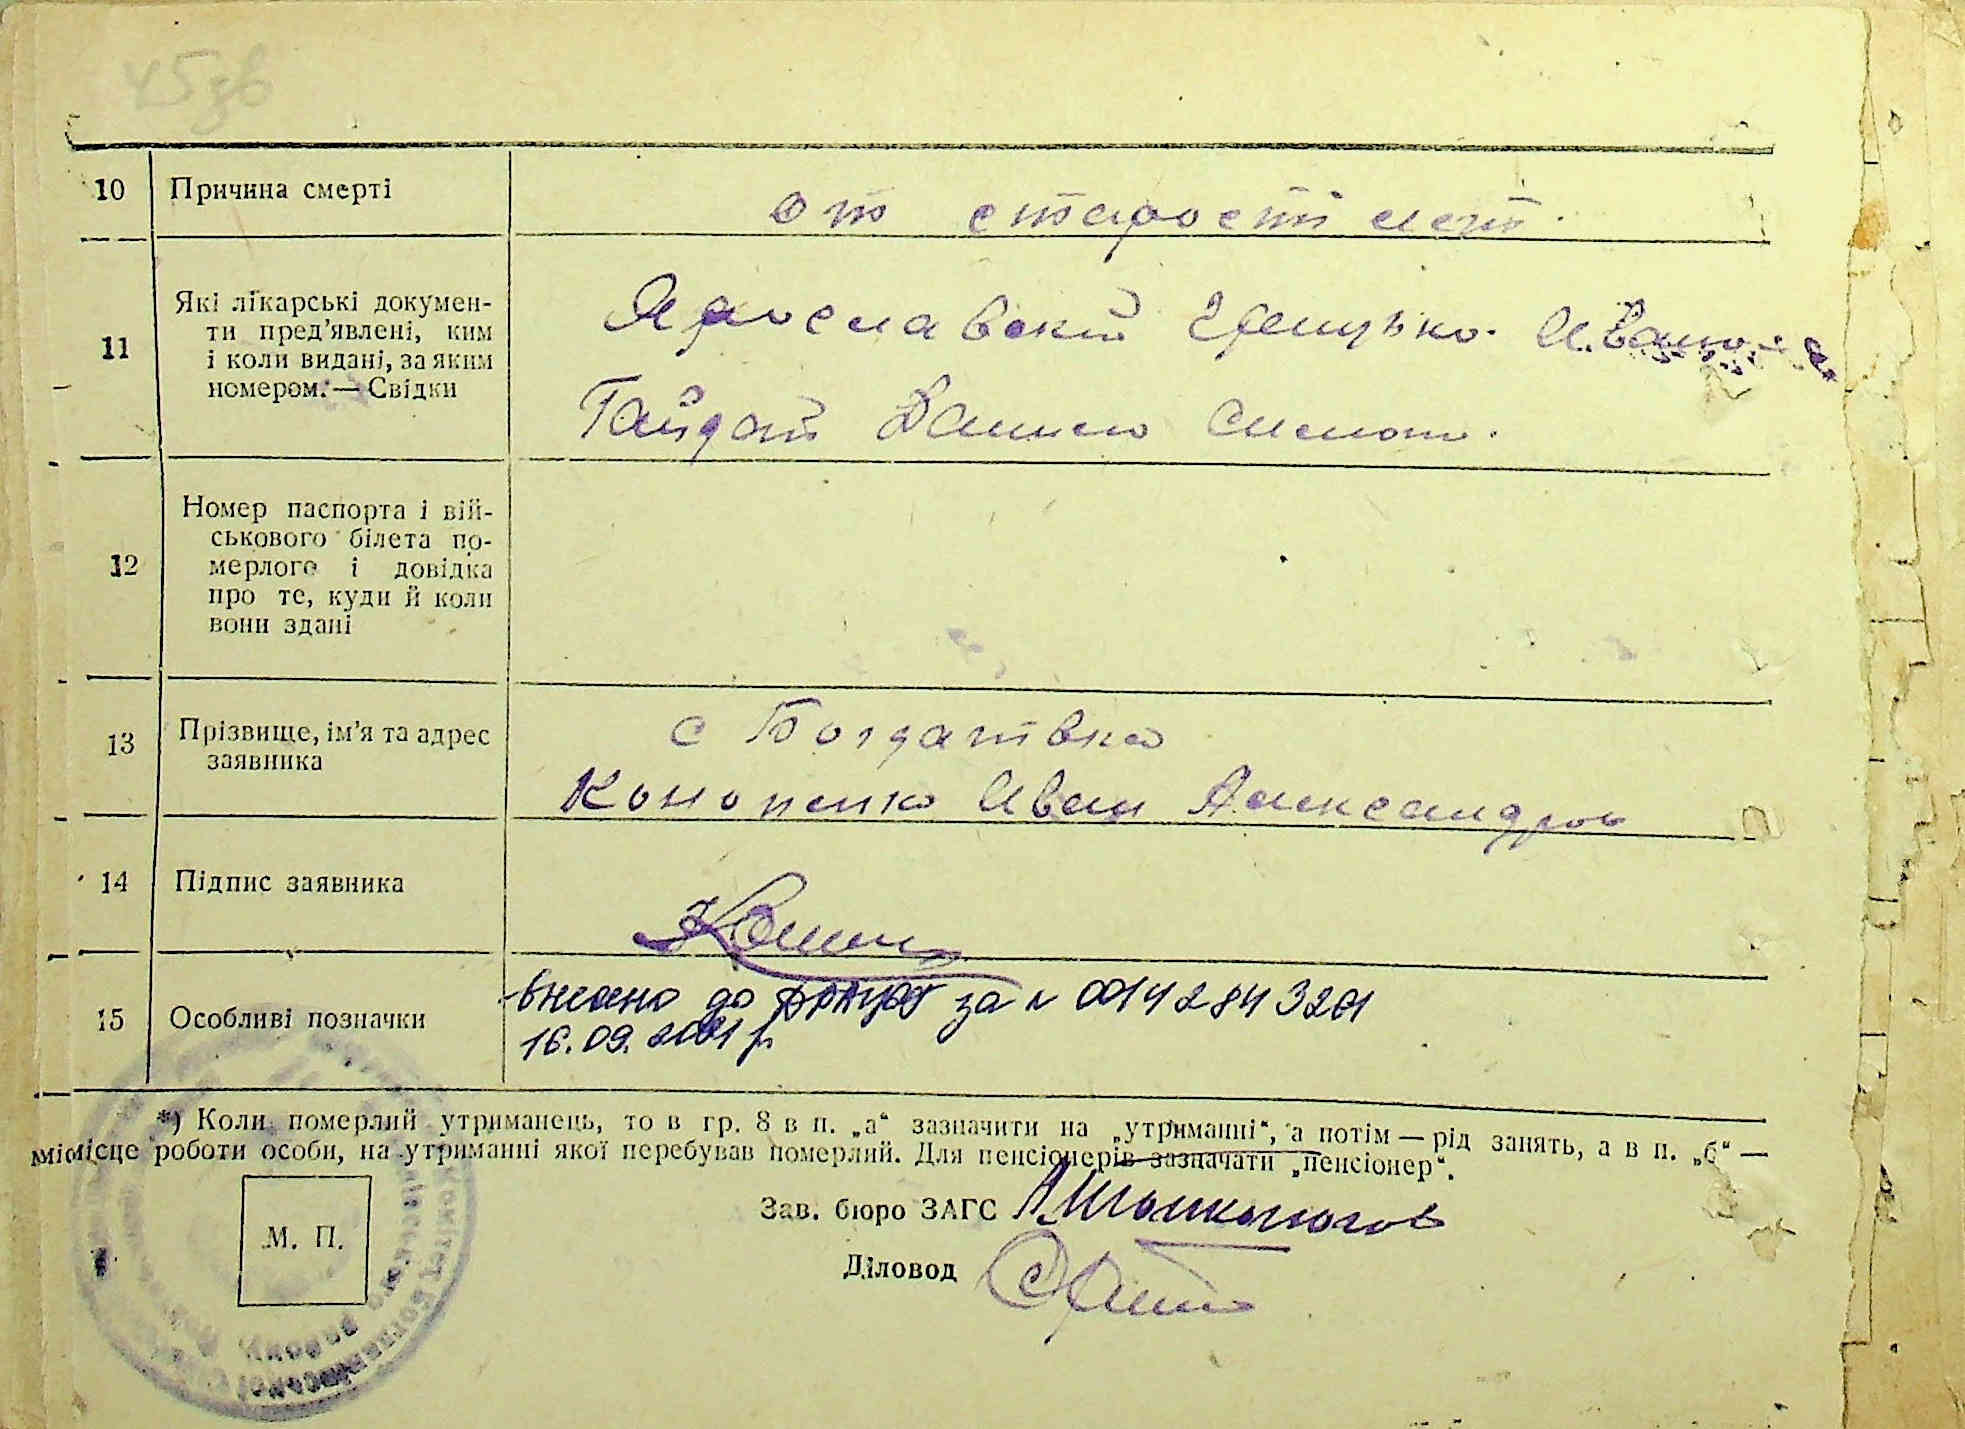 10 Причина смерті от старости лет.
11 Які лікарські докумен-
ти пред'явлені, ким
і коли видані, за яким
номером. — Свідки
Ярославский
Гайдай Данило
12 Номер паспорта і вій-
ськового білета по-
мерлого і довідка
про те, куди й коли
вони здані
13 Прізвище, ім'я та адрес
заявника
с Богдатівка
Кононенко Иван Александров
14 Підпис заявника
15 Особливі позначки
внесено до за N 00142843201
16.09.2021 р.
*) Коли померлий утриманець, то в гр. 8 в п. „а“ зазначити на „утриманні“, а потім — рід занять, а в п. „б“ —
місце роботи особи, на утриманні якої перебував померлий. Для пенсіонерів зазначати „пенсіонер“.
М. П.
Зав. бюро ЗАГС
Діловод